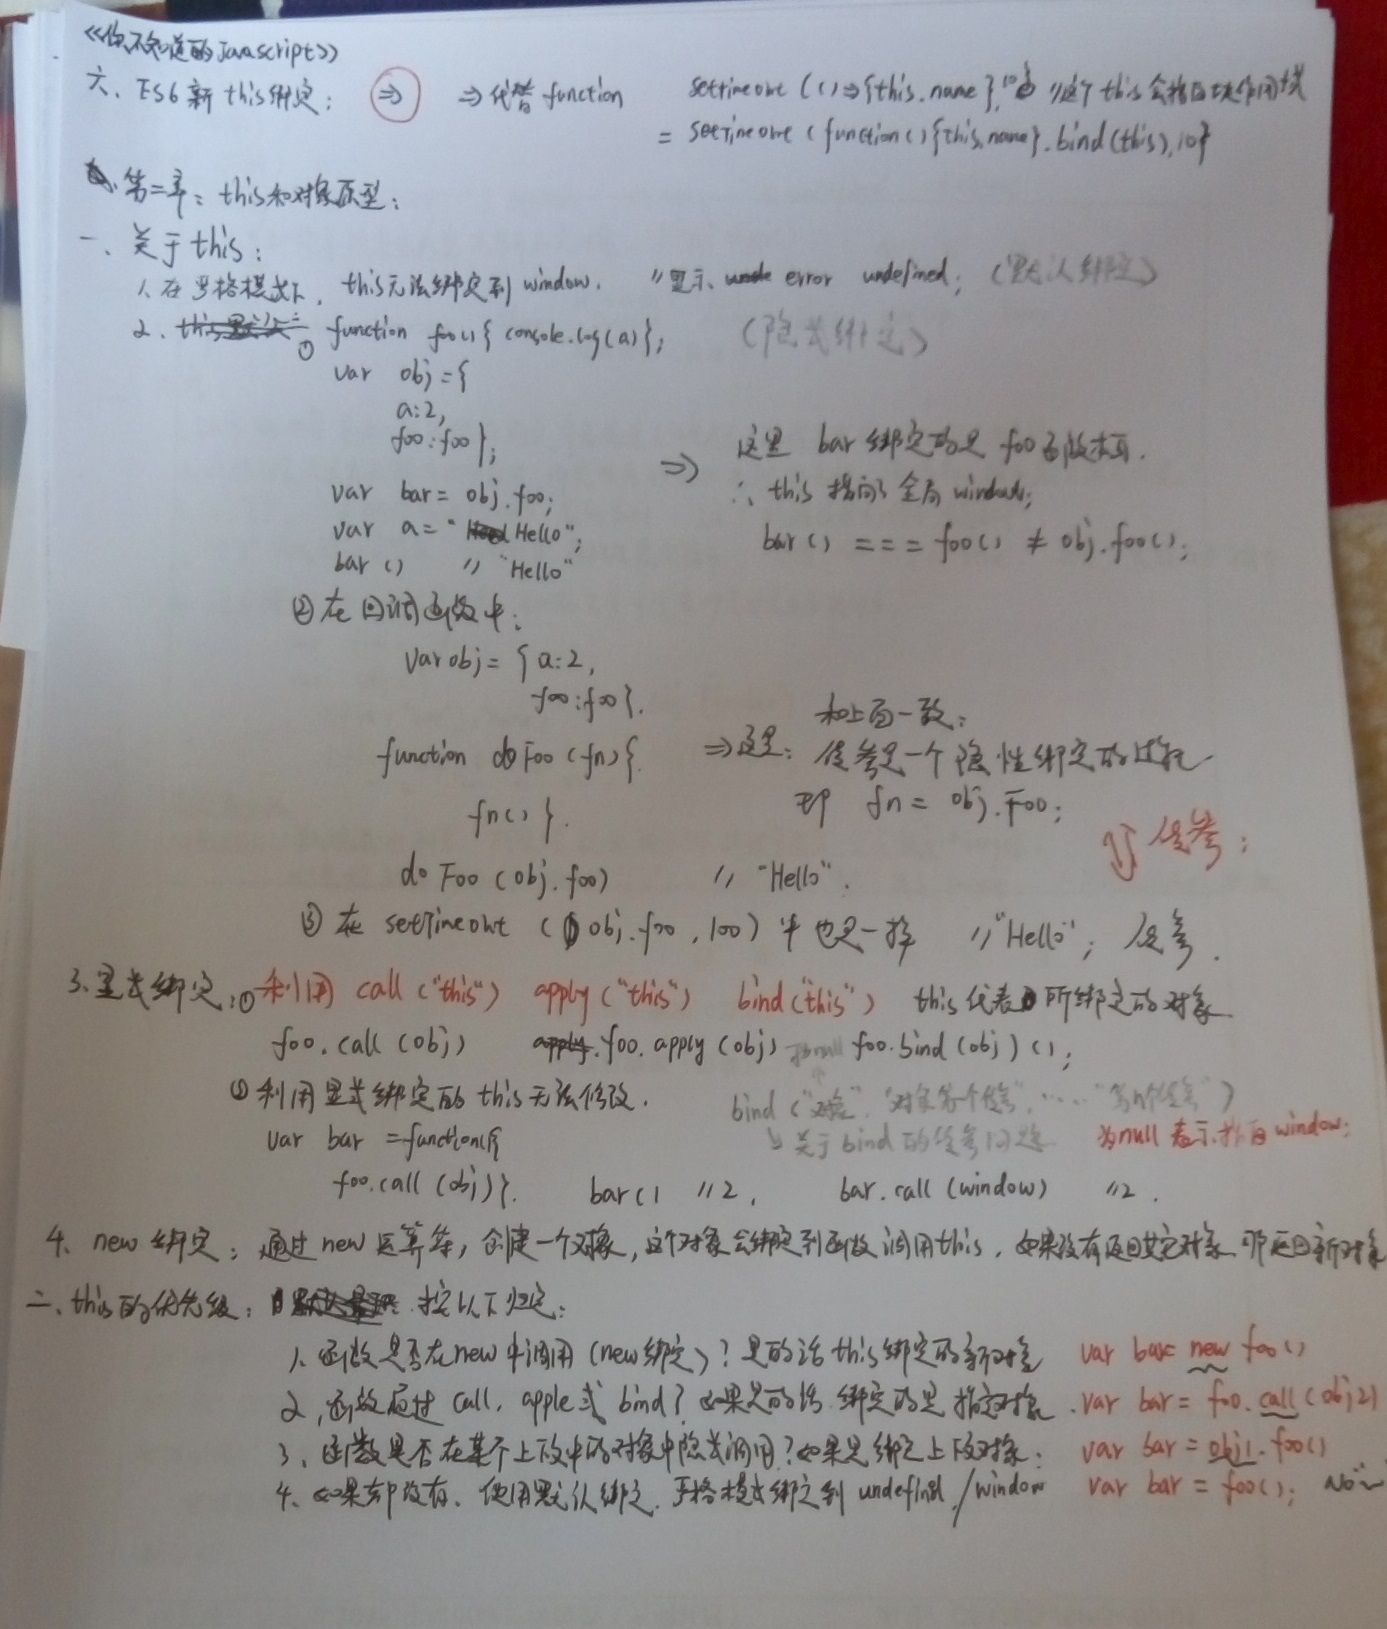 <<你不知道的Javascript>>
六、ES6新this绑定： => =>代替function setTimeout(()=>{this.name},10) //这个this会指向块作用域
= setTimeout(function(){this.name}.bind(this),10}
第二章：this和对象原型：
一、关于this：
1、在严格模式下，this无法绑定到window. //显示 error undefined; (默认绑定)
2、① function foo(){console.log(a)}; (隐式绑定)
var obj={
a:2,
foo:foo};
var bar= obj.foo;
var a="Hello";
bar() // "Hello"
=> 这里 bar绑定的是 foo函数本身.
∴ this指向了全局window;
bar() === foo() ≠ obj.foo();
②在回调函数中：
var obj= {a:2,
foo:foo}.
function doFoo(fn){.
fn()}.
doFoo(obj.foo) // "Hello".
和上面一致：
=>这里：传参是一个隐性绑定的过程
即 fn = obj.Foo;
传参：
③在 setTimeout (obj.foo,100) 中也是一样 //"Hello"; 传参.
3、显式绑定：①利用 call("this") apply("this") bind("this") this代表所绑定的对象
foo.call(obj) foo.apply(obj) foo.bind(obj)();
②利用显式绑定的this无法修改.
bind("对象", "对象第一个传参", ...... "第n个传参")
关于bind的传参问题 为null表示指向window;
var bar =function(){
foo.call(obj)}. bar() //2. bar.call(window) //2.
4、new绑定：通过new运算符，创建一个对象，这个对象会绑定到函数调用this，如果没有返回其它对象，那返回新对象
二、this的优先级： 按以下规定：
1、函数是否在new中调用(new绑定)？是的话this绑定的新对象 var bar= new foo()
2、函数通过 call, apple或 bind？如果是的话绑定的是指定对象. var bar= foo.call(obj2)
3、函数是否在某个上下文中的对象中隐式调用？如果是绑定上下文对象： var bar = obj1.foo()
4、如果都没有、使用默认绑定，严格模式绑定到 undefined/window var bar = foo();